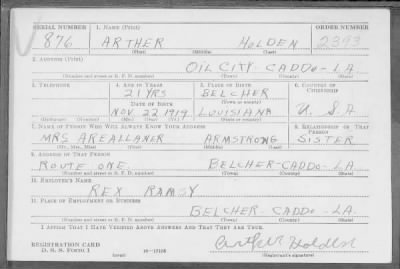 SERIAL NUMBER 1. NAME (Print) ORDER NUMBER
876 ARTHER HOLDEN 2393
(First) (Middle) (Last)
2. ADDRESS (Print)
OIL CITY - CADDO - LA
(Number and street or R. F. D. number) (Town) (County) (State)
3. TELEPHONE 4. AGE IN YEARS 5. PLACE OF BIRTH 6. COUNTRY OF CITIZENSHIP
21 YRS BELCHER
DATE OF BIRTH (Town or county)
NOV 22 1919 LOUISIANA U.S.A
(Exchange) (Number) (Mo.) (Day) (Yr.) (State or country)
7. NAME OF PERSON WHO WILL ALWAYS KNOW YOUR ADDRESS 8. RELATIONSHIP OF THAT PERSON
MRS AREALLANER ARMSTRONG SISTER
(Mr., Mrs., Miss) (First) (Middle) (Last)
9. ADDRESS OF THAT PERSON
ROUTE ONE. BELCHER - CADDO - LA.
(Number and street or R. F. D. number) (Town) (County) (State)
10. EMPLOYER'S NAME
REX RAMSY
11. PLACE OF EMPLOYMENT OR BUSINESS
BELCHER - CADDO - LA.
(Number and street or R. F. D. number) (Town) (County) (State)
I AFFIRM THAT I HAVE VERIFIED ABOVE ANSWERS AND THAT THEY ARE TRUE.
REGISTRATION CARD
D. S. S. Form 1 (over) Arther Holden